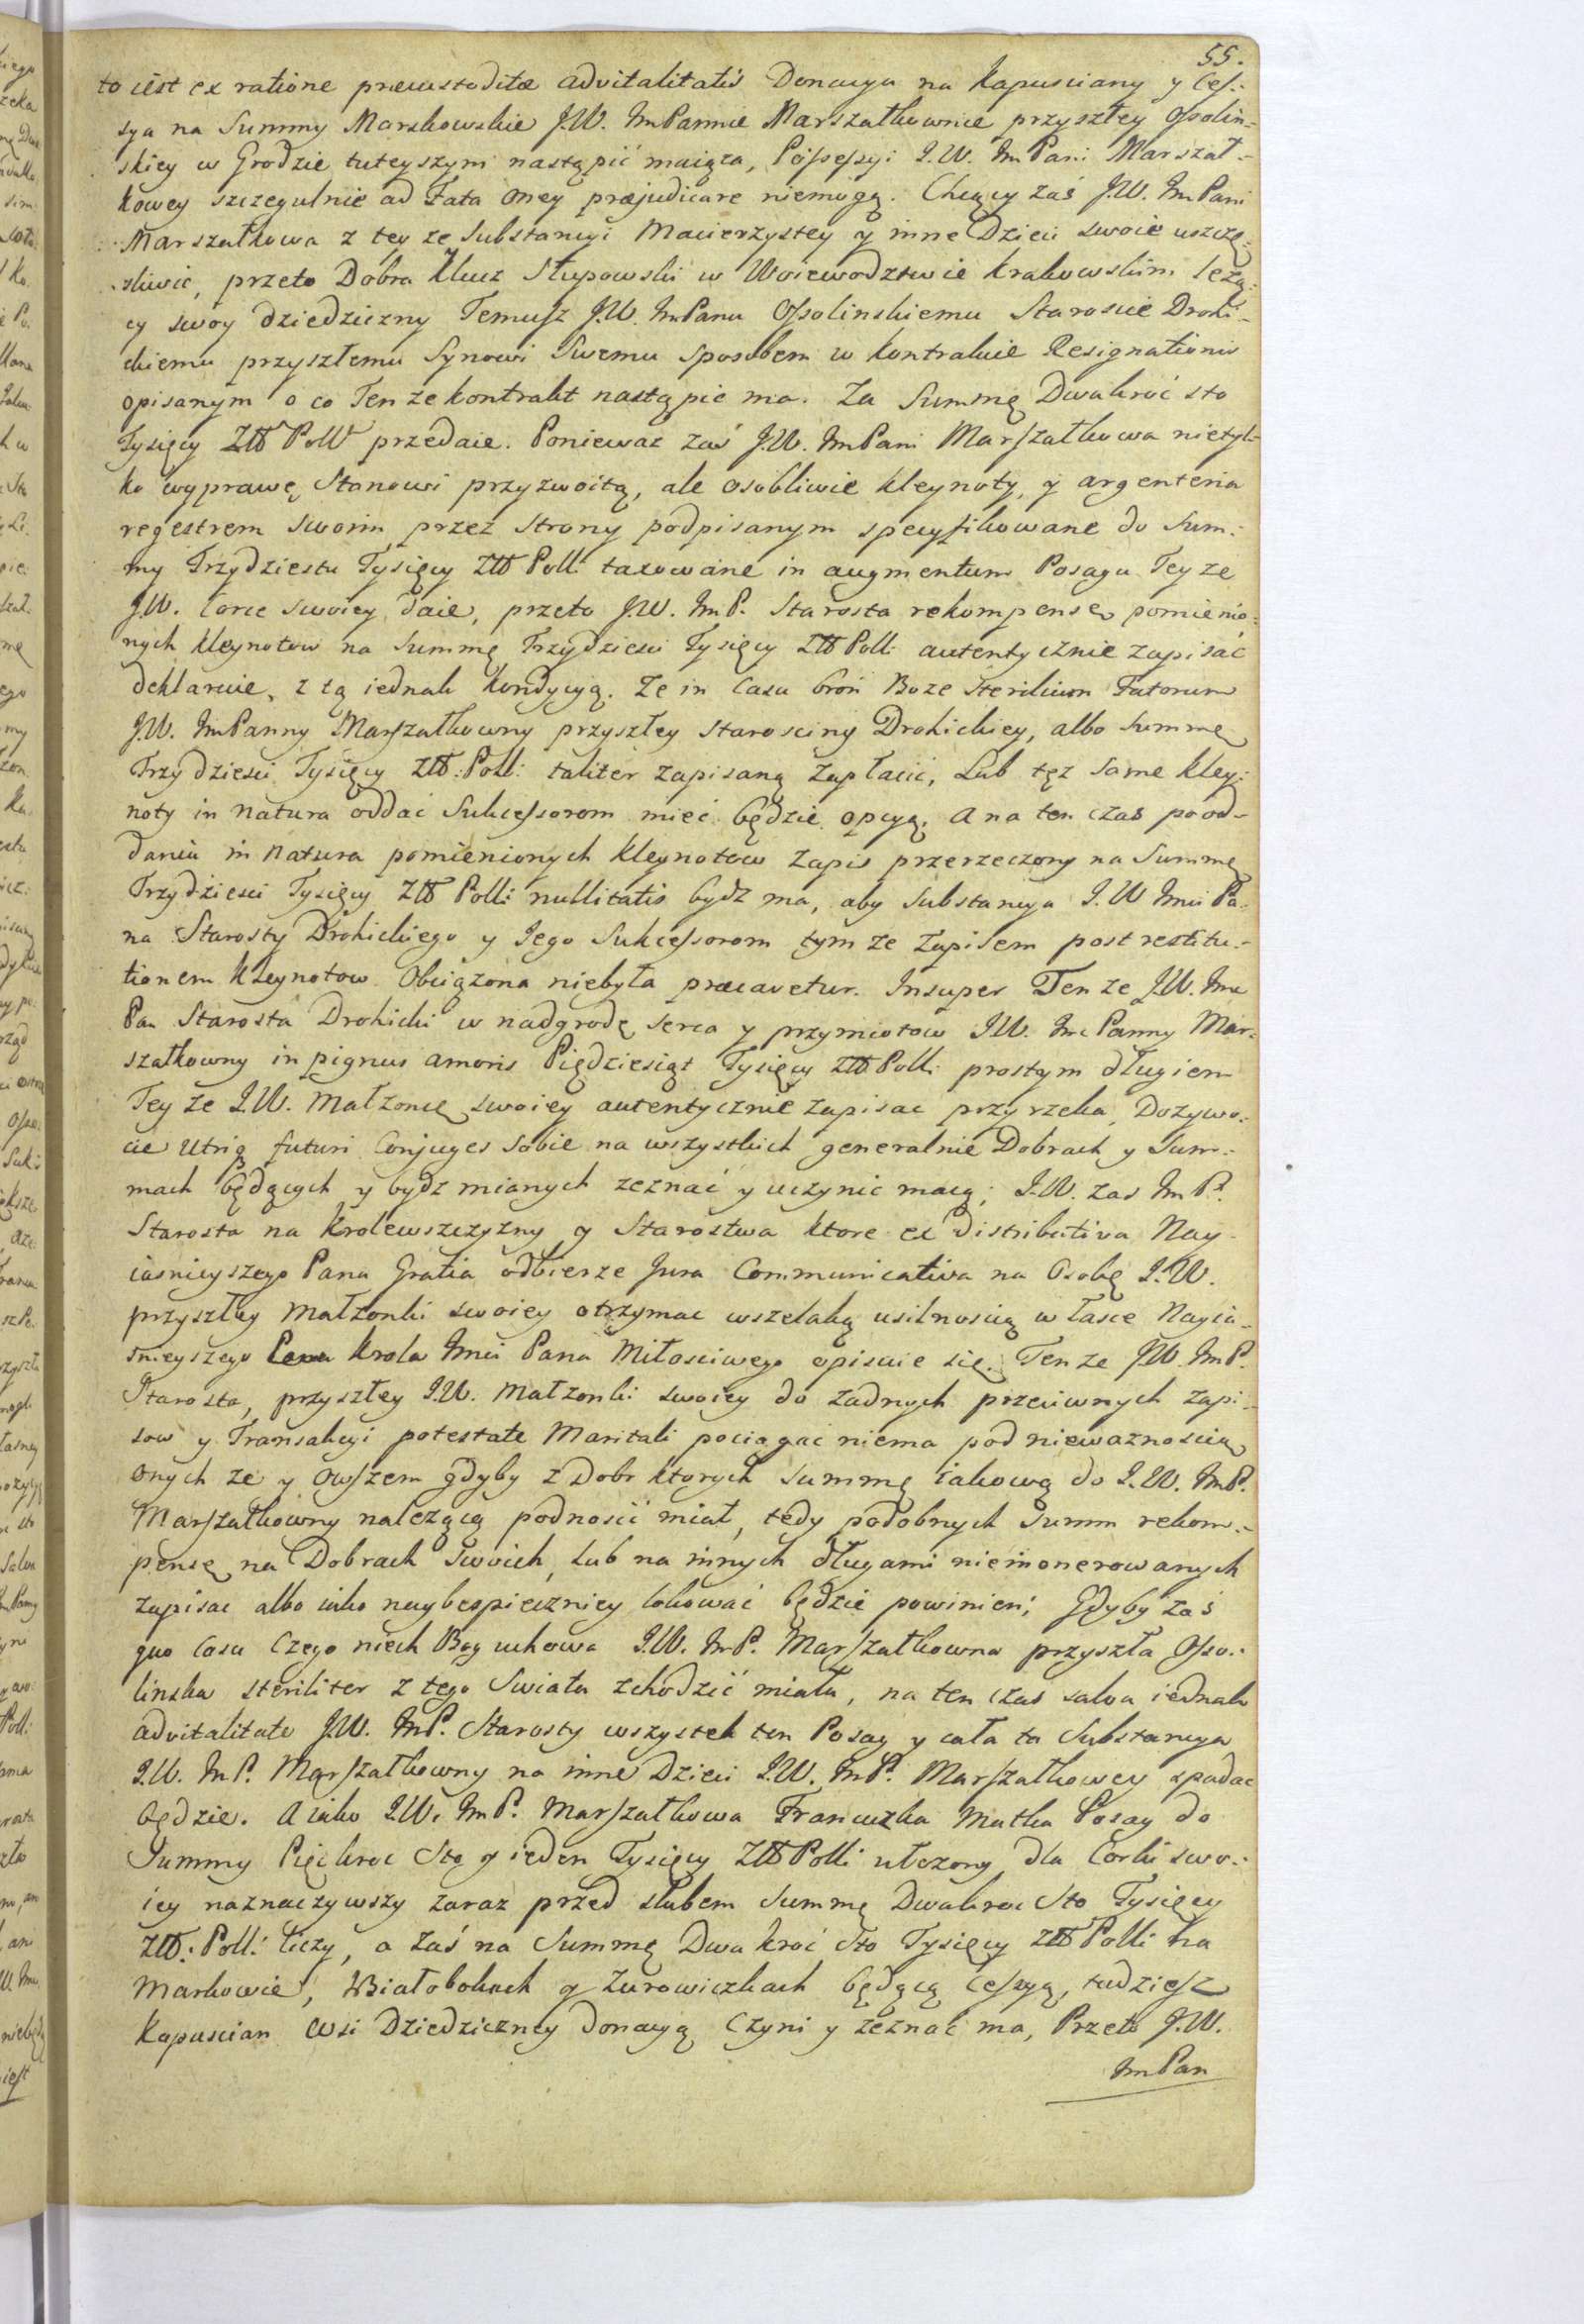 55.
to iest ex ratione præcustoditæ advitalitatis Donacya na Kapusciany y Ces:
sya na Summy Markowskie J.W. ImPannie Marszałkownie przyszłey Ossolin-
skiey w Grodzie tuteyszym nastąpić maiąca, Possessyi J.W. ImPani Marszał-
kowey szczegulnie ad Fata oney præjudicare niemogą. Chcący zaś J.W. ImPani
Marszałkowa z tey ze Substancyi Macierzystey y inne Dzieci swoie uszczę-
sliwic, przeto Dobra Klucz Słupowski w Woiewodztwie Krakowskim leżą-
cy swoy dziedziczny Temusz J.W. ImPanu Ossolinskiemu Staroscie Drohi-
ckiemu przyszłemu Synowi Swemu sposobem w Kontrakcie Resignationis
opisanym o co Ten ze Kontrakt nastąpic ma. Za Summę Dwakroć sto
Tysięcy Złł Poll przedaie. Poniewaz zaś J.W. ImPani Marszałkowa nietyl-
ko wyprawę Stanowi przyzwoitą, ale osobliwie kleynoty, y argenteria
regestrem swoim przez strony podpisanym specyfikowane do Sum-
my Trzydziestu Tysięcy Złł Poll: taxowane in augmentum Posagu Tey ze
J.W. Corce swoiey daie, przeto J.W. ImP. Starosta rekompensę pomienio-
nych kleynotow na Summę Trzydziesci Tysięcy Złł Poll: autentycznie zapisać
deklaruie, z tą iednak kondycyą. Ze in Casu broń Boze Sterilium Fatorum
J.W. ImPanny Marszałkowny przyszłey Starosciny Drohickiey, albo Summę
Trzydziesci Tysięcy Złł: Poll: taliter zapisaną zapłacić, Lub tęz same kley-
noty in natura oddać Sukcessorom mieć będzie opcyą. A na ten czas po od-
daniu in natura pomienionych kleynotow zapis przerzeczony na Summę
Trzydziesci Tysięcy Złł Poll: nullitatis bydz ma, aby Substancya J.W Imci Pa-
na Starosty Drohickiego y Jego Sukcessorom tym ze zapisem post restitu-
tionem Kleynotow Obciązona niebyła præcavetur. Insuper Ten ze J.W. Imc
Pan Starosta Drohicki w nadgrodę serca y przymiotow J.W. Imc Panny Mar-
szałkowny in pignus amoris Pięćdziesiąt Tysięcy Złł Poll: prostym długiem
Tey ze J.W. Małzonce swoiey autentycznie zapisac przyrzeka, Dozywo-
cie Utriq futuri Conjuges sobie na wszystkich generalnie Dobrach y Sum-
mach będących y bydz mianych zeznać y uczynic maią; J.W. zas ImP.
Starosta na Krolewszczyzny y Starostwa ktore ex distributiva Nay-
iasnieyszego Pana Gratia odbierze Jura Communicativa na Osobę J.W.
przyszłey Małzonki swoiey otrzymac wszelaką usilnoscią w łasce Nayia-
snieyszego Krola Imci Pana Miłosciwego opisuie się. Ten ze J.W. ImP.
Starosta, przyszłey J.W. Małzonki swoiey do zadnych przeciwnych zapi-
sow y Transakcyi potestate Maritali pociągac niema pod niewaznoscią
onych ze y owszem gdyby z Dobr ktorych Summę iakową do J.W. ImP.
Marszałkowny nalezącą podnosić miał, tedy podobnych Summ rekom-
pensę na Dobrach Swoich, lub na innych długami nieinonerowanych
zapisac albo iako naybespieczniey lokować będzie powinien; Gdyby zaś
quo Casu Czego niech Bog uchowa J.W. ImP. Marszałkowna przyszła Osso-
linska steriliter z tego Swiata zchodzić miała, na ten czas salva iednak
advitalitate J.W. ImP. Starosty wszystek ten Posag y cała ta Substancya
J.W. ImP. Marszałkowny na inne Dzieci J.W. ImP. Marszałkowey spadac
będzie. A iako J.W. ImP. Marszałkowa Franciszka Matka Posag do
Summy Pięckroc Sto y ieden Tysięcy Złł Poll: ułozony dla Corki swo-
iey naznaczywszy zaraz przed slubem Summę Dwakroc Sto Tysięcy
Złł: Poll: liczy, a zaś na Summę Dwa kroć Sto Tysięcy Złł Poll: na
Markowie, Białobokach y Zurowiczkach będącą Cessyą, tudziesz
Kapuscian Wsi Dziedziczney donacyą Czyni y zeznać ma, Przeto J.W.
ImPan